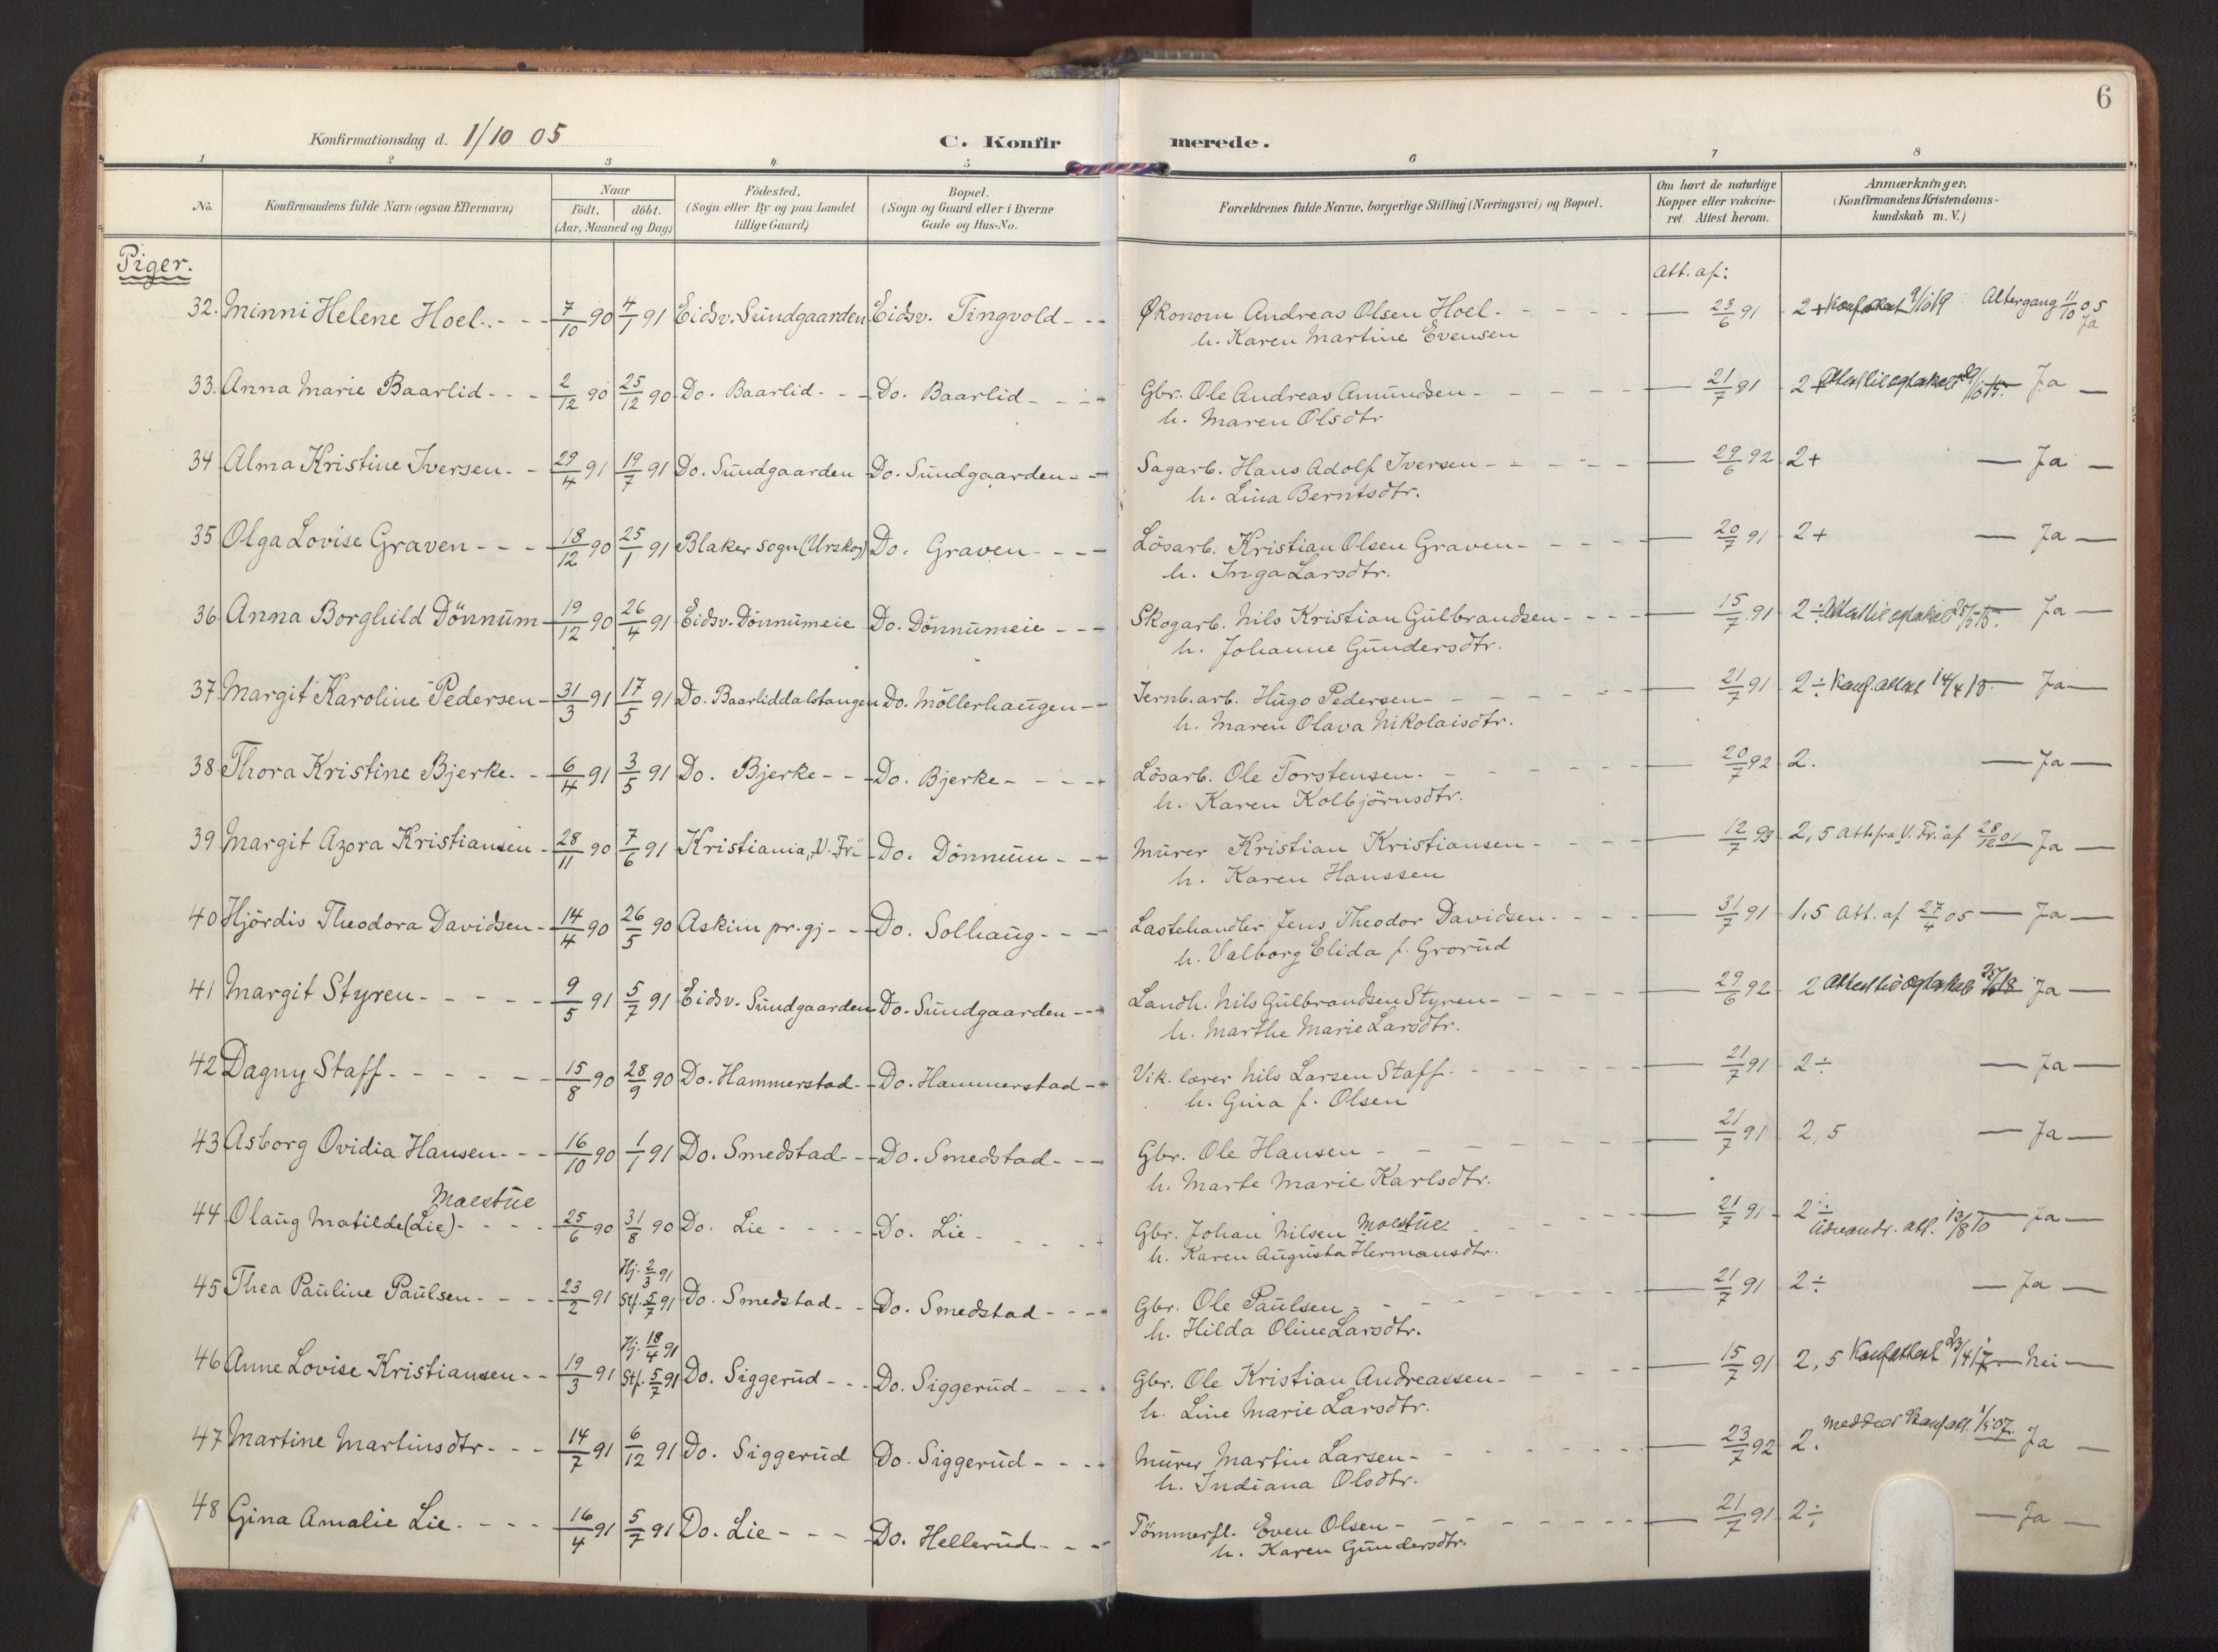 6
Konfirmationsdag d. 1/10 05
C. Konfirmerede.
1 2 3 4 5 6 7 8
No.
Konfirmandens fulde Navn (ogsaa Efternavn)
Naar
Födt. döbt.
(Aar, Maaned og Dag)
Födested.
(Sogn eller By og paa Landet
tillige Gaard)
Bopæl.
(Sogn og Gaard eller i Byerne
Gade og Hus-No.
Forældrenes fulde Navne, borgerlige Stilling (Næringsvei) og Bopæl.
Om havt de naturlige
Kopper eller vakcine-
ret. Attest herom.
Anmærkninger.
(Konfirmandens Kristendoms-
kundskab m. V.)
Piger.
Att. af:
32. Minni Helene Hoel. 7/10 90 4/1 91 Eidsv. Sundgaarden Eidsv. Tingvold Økonom Andreas Olsen Hoel. 23/6 91 2+ Altergang 11/10 05 Ja
h. Karen Martine Evensen
33. Anna Marie Baarlid 2/12 90 25/12 90 Do. Baarlid Do. Baarlid Gbr. Ole Andreas Amundsen 21/7 91 2+ Ja
h. Maren Olsdtr
34 Alma Kristine Iversen 29/4 91 19/7 91 Do. Sundgaarden Do. Sundgaarden Sagarb. Hans Adolf Iversen 29/6 92 2+ Ja
h. Lina Berntsdtr.
35 Olga Lovise Graven 18/12 90 25/1 91 Blaker sogn (Urskog) Do. Graven Lösarb. Kristian Olsen Graven 20/7 91 2+ Ja
h. Inga Larsdtr.
36 Anna Borghild Dönnum 19/12 90 26/4 91 Eidsv. Dönnumeie Do. Dönnumeie Skogarb. Nils Kristian Gulbrandsen 15/7 91 2÷ Ja
h. Johanne Gundersdtr.
37 Margit Karoline Pedersen 31/3 91 17/5 91 Do. Baarliddalstangen Do. Möllerhaugen Jernb.arb. Hugo Pedersen 21/7 91 2÷ Konf. attest 14/4 18 Ja
h. Maren Olava Nikolaisdtr.
38 Thora Kristine Bjerke. 6/4 91 3/5 91 Do. Bjerke Do. Bjerke Lösarb. Ole Torstensen. 20/7 92 2. Ja
h. Karen Kolbjörnsdtr.
39 Margit Azora Kristiansen 28/11 90 7/6 91 Kristiania, "V. Fr." Do. Dönnum Murer Kristian Kristiansen 12/7 93 2,5 Att. fra V. Fr. af 28/12 01 Ja
h. Karen Hanssen
40 Hjördis Theodora Davidsen 14/4 90 26/5 90 Askim pr.gj. Do. Solhaug Lastehandler Jens Theodor Davidsen 31/7 91 1,5 Att. af 27/4 05 Ja
h. Valborg Elida f. Grorud
41 Margit Styren 9/5 91 5/7 91 Eidsv. Sundgaarden Do. Sundgaarden Landh. Nils Gulbrandsen Styren 29/6 92 2 Ja
h. Marthe Marie Larsdtr.
42 Dagny Staff. 15/8 90 28/9 90 Do. Hammerstad Do. Hammerstad Vik. lærer Nils Larsen Staff. 21/7 91 2÷ Ja
h. Gina f. Olsen
43 Asborg Ovidia Hansen 16/10 90 1/1 91 Do. Smedstad Do. Smedstad Gbr. Ole Hansen 21/7 91 2,5 Ja
h. Marte Marie Karlsdtr.
Moestue
44 Olaug Matilde (Lie) 25/6 90 31/8 90 Do. Lie Do. Lie Gbr. Johan Nilsen Moestue 21/7 91 2÷ Udvandr. att. 13/8 10 Ja
h. Karen Augusta Hermansdtr.
Hj. 2/3 91
45 Thea Pauline Paulsen 23/2 91 Stf. 5/7 91 Do. Smedstad Do. Smedstad Gbr. Ole Paulsen 21/7 91 2÷ Ja
h. Hilda Oline Larsdtr.
Hj. 18/4 91
46 Anne Lovise Kristiansen 19/3 91 Stf. 5/7 91 Do. Siggerud Do. Siggerud Gbr. Ole Kristian Andreassen 15/7 91 2,5 Konf attest 23/4 17 Nei
h. Line Marie Larsdtr.
47 Martine Martinsdtr 14/7 91 6/12 91 Do. Siggerud Do. Siggerud Murer Martin Larsen 23/7 92 2. Konf. att. 1/5 07. Ja
h. Indiana Olsdtr.
48 Gina Amalie Lie. 16/4 91 5/7 91 Do. Lie Do. Hellerud Tömmerfl. Even Olsen 21/7 91 2÷ Ja
h. Karen Gundersdtr.